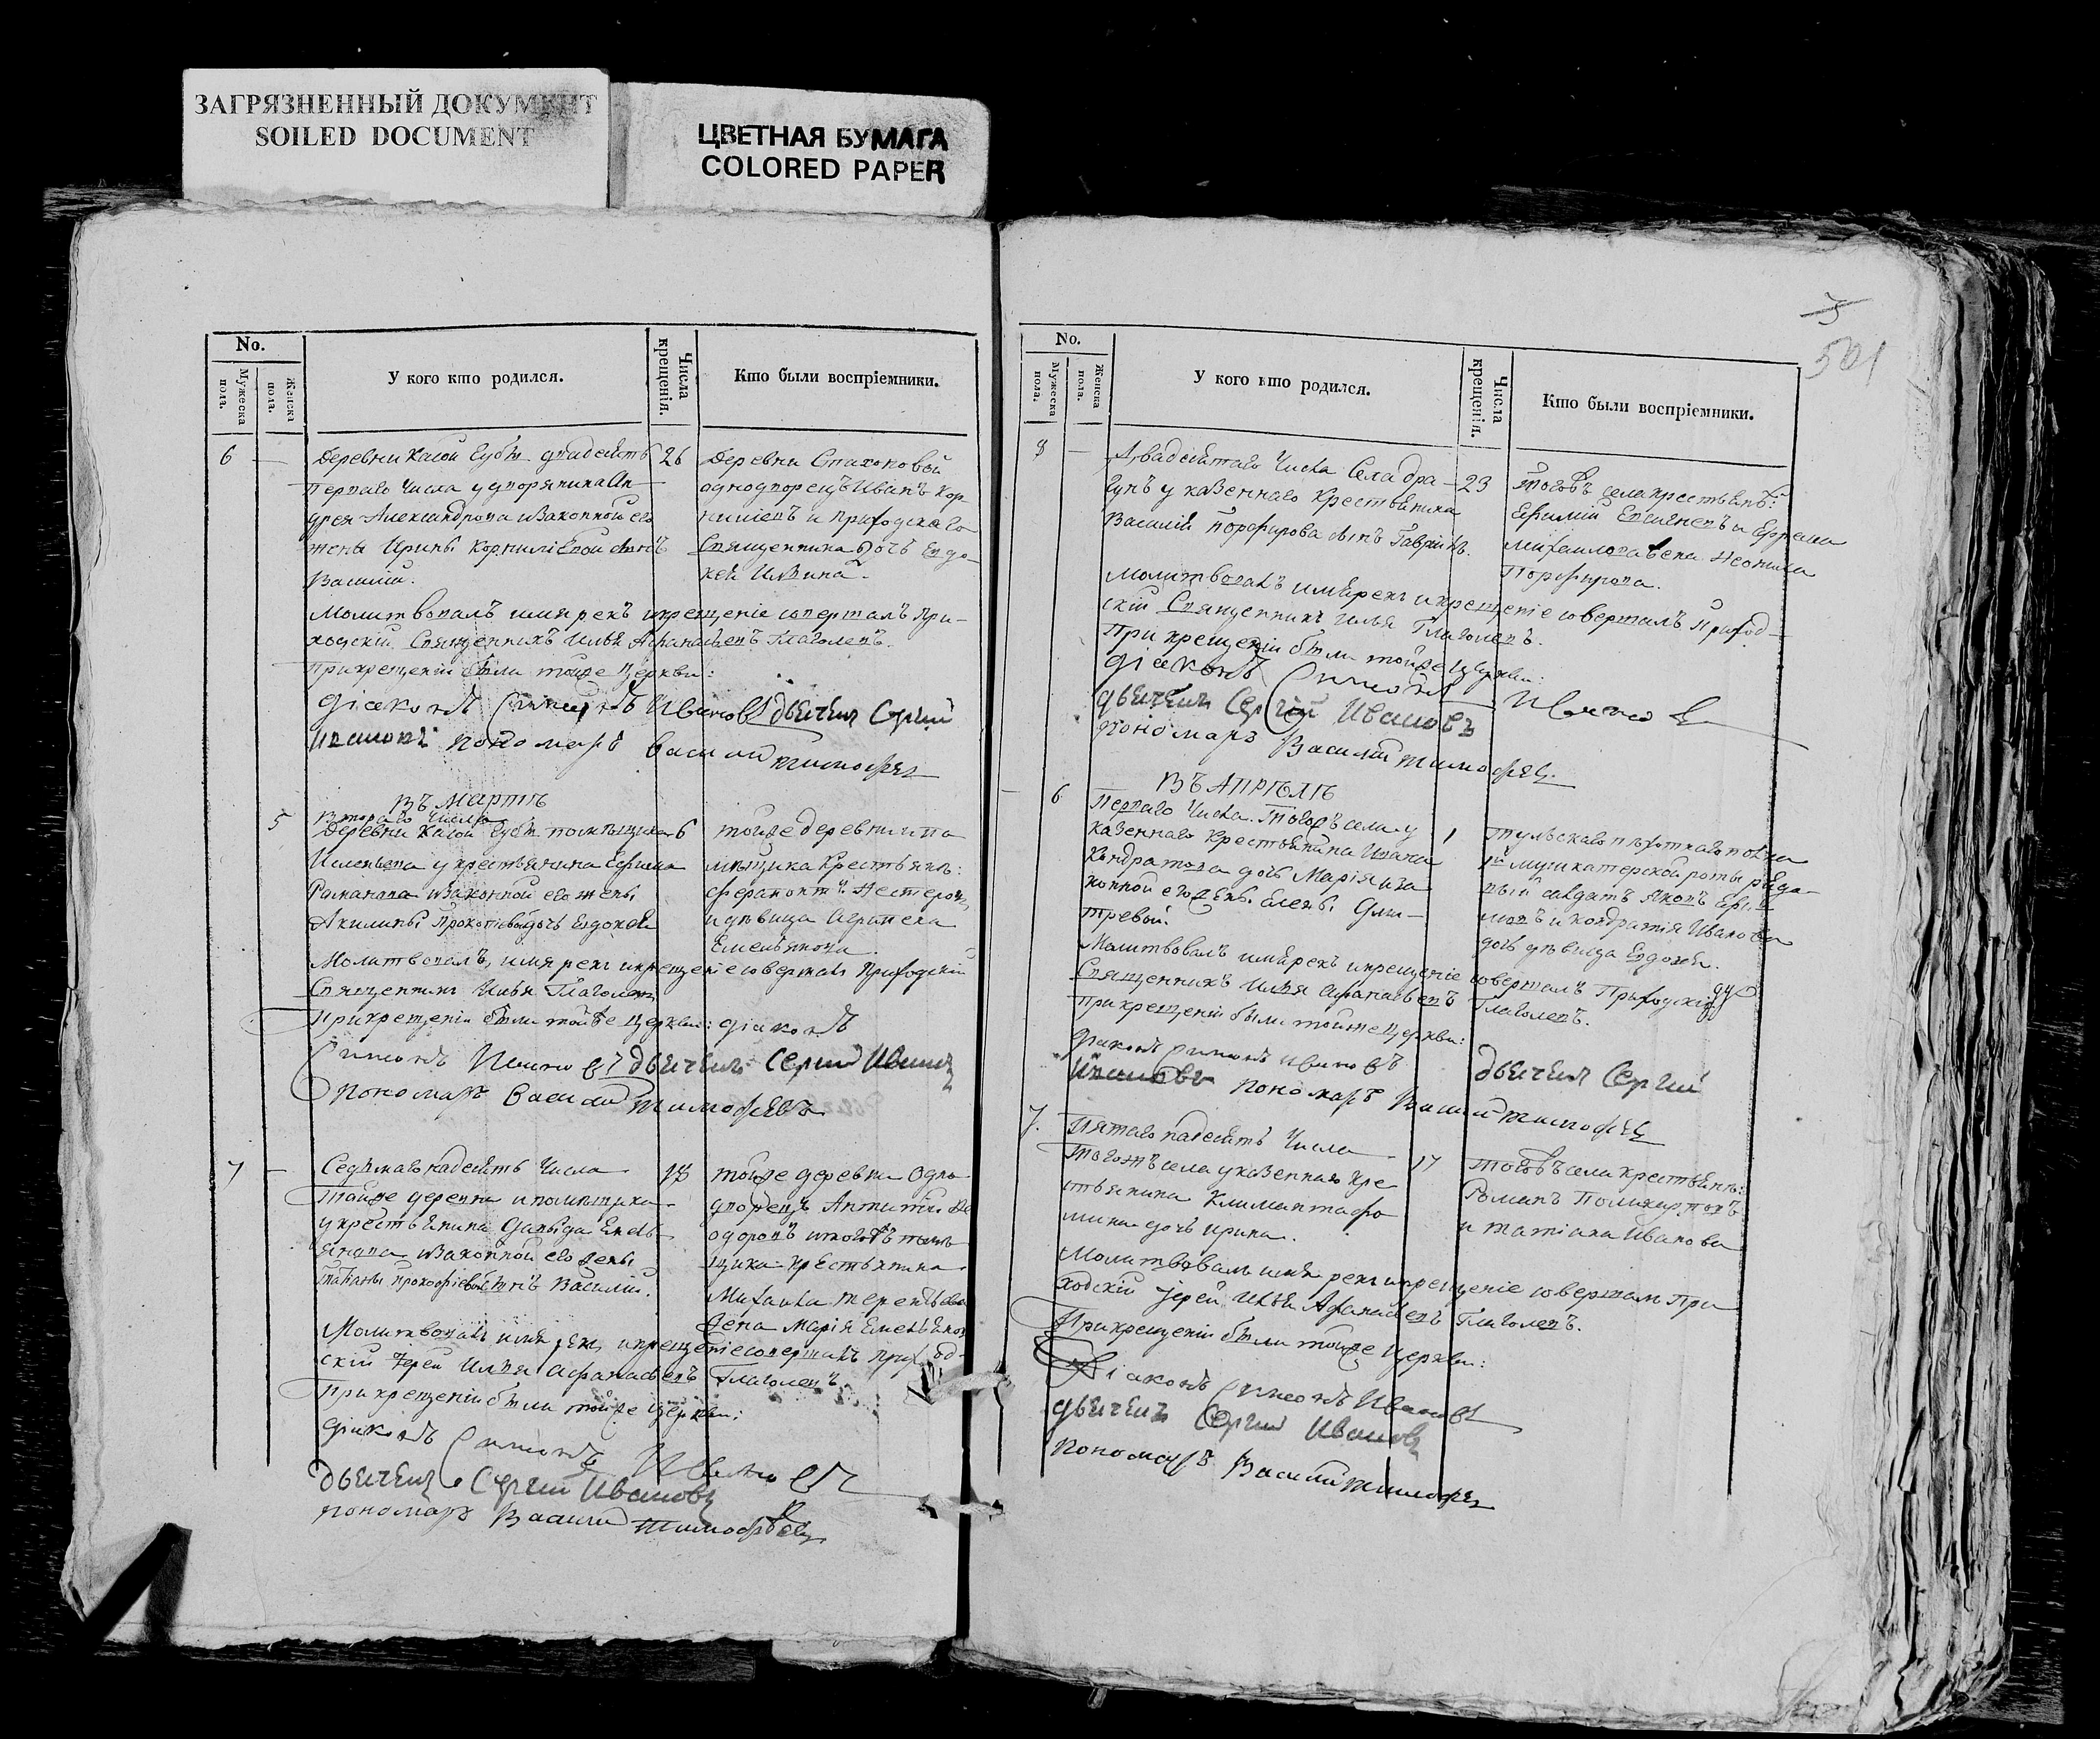 ЗАГРЯЗНЕННЫЙ ДОКУМЕНТ
SOILED DOCUMENT
ЦВЕТНАЯ БУМАГА
COLORED PAPER
No.
Мужеска пола.
Женска пола.
У кого кто родился.
Числа крещенія.
Кто были воспріемники.
6 —
Деревни Касой Губы двадесять
перваго числа у дворянина Ан-
дрея Александрова и законной его
жены Ирины Корниліевой сынъ
Василій.
26
Деревни Стахоновой
однодворецъ Иванъ Кор-
нишевъ и Приходскаго
Священника дочь Евдо-
кея Ильина.
Молитвовалъ имя рекъ и крещеніе совершалъ При-
ходскій Священникъ Илья Афанасьевъ Глаголевъ.
При крещеніи были тойже Церкви:
Діаконъ Симеонъ Ивановъ дьячекъ Сергий
Ивановъ пономарь Василий Тимофеев
Въ Мартѣ
5
Втораго числа
Деревни Касой Губы помѣщика
у крестьянина Ефима
Романова и законной его жены
Акилины Прокопіевой дочь Евдокея
6
тойже деревни и по-
мѣщика Крестьянъ:
Ферапонтъ Нестеровъ
и дѣвица Агрипена
Емельянова.
Молитвовалъ, имя рекъ и крещеніе совершалъ Приходскій
Священникъ Илья Глаголевъ
При крещеніи были тойже Церкви: Діаконъ
Симеонъ Ивановъ дьячекъ Сергий Ивановъ
Пономарь Василий Тимофеевъ
7 —
Седьмаго надесять Числа
тойже деревни и помѣщика
у крестьянина Давыда Емель-
янова и законной его жены
Татьяны Прокофіевой сынъ Василій.
18
тойже деревни Одно-
дворецъ Антипъ Ѳе-
одоровъ и тогожъ помѣ-
щика крестьянина
Михаила Терентьева
жена Марія Емельянова
Молитвовалъ имя рекъ, и крещеніе совершалъ Приход-
скій Іерей Илья Афанасьевъ Глаголевъ
При крещеніи были тойже Церкви:
Діаконъ Симеонъ Ивановъ
дьячекъ Сергий Ивановъ
пономарь Василий Тимофѣевъ
501
No.
Мужеска пола.
Женска пола.
У кого кто родился.
Числа крещенія.
Кто были воспріемники.
8 —
Двадесятаго Числа Села Дра-
гунъ у казеннаго Крестьянина
Василія Порфирова сынъ Гавріилъ.
23
тогожъ села крестьянъ:
Ефимій Евсигнеевъ и Ефрема
Михаилова жена Неонила
Порфирова.
Молитвовалъ имя рекъ и крещеніе совершалъ Приход-
скій Священникъ Илья Глаголевъ.
При крещеніи были тойже Церкви:
Діаконъ Симеонъ Ивановъ
дьячекъ Сергій Ивановъ
пономарь Василий Тимофеев.
Въ Апрѣлѣ
6
Перваго Числа. Тогожъ села у
казеннаго крестьянина Ивана
Кондратова дочь Марія и за-
конной его жены Елены Дми-
тревой.
1
Тульскаго пѣхотнаго полка
1й мушкатерской роты рядо-
вый салдатъ Яковъ Ефи-
мовъ и Кондратія Иванова
дочь дѣвица Евдокея.
Молитвовалъ имя рекъ и крещеніе совершалъ Приходскій
Священникъ Илья Афанасьевъ Глаголевъ.
При крещеніи были тойже Церкви:
Діаконъ Симеонъ Ивановъ дьячекъ Сергий
Ивановъ пономарь Василий Тимофеев
7.
Пятаго надесять Числа
Тогожъ села у казеннаго кре-
стьянина Климанта Фо-
мина дочь Ирина.
17
тогожъ села крестьянъ:
Романъ Поликарповъ
и Татіана Иванова
Молитвовалъ имя рекъ и крещеніе совершалъ При-
ходскій Іерей Илья Афанасьевъ Глаголевъ.
При крещеніи были тойже Церкви:
Діаконъ Симеонъ Ивановъ
дьячекъ Сергий Ивановъ
пономарь Василий Тимофеев